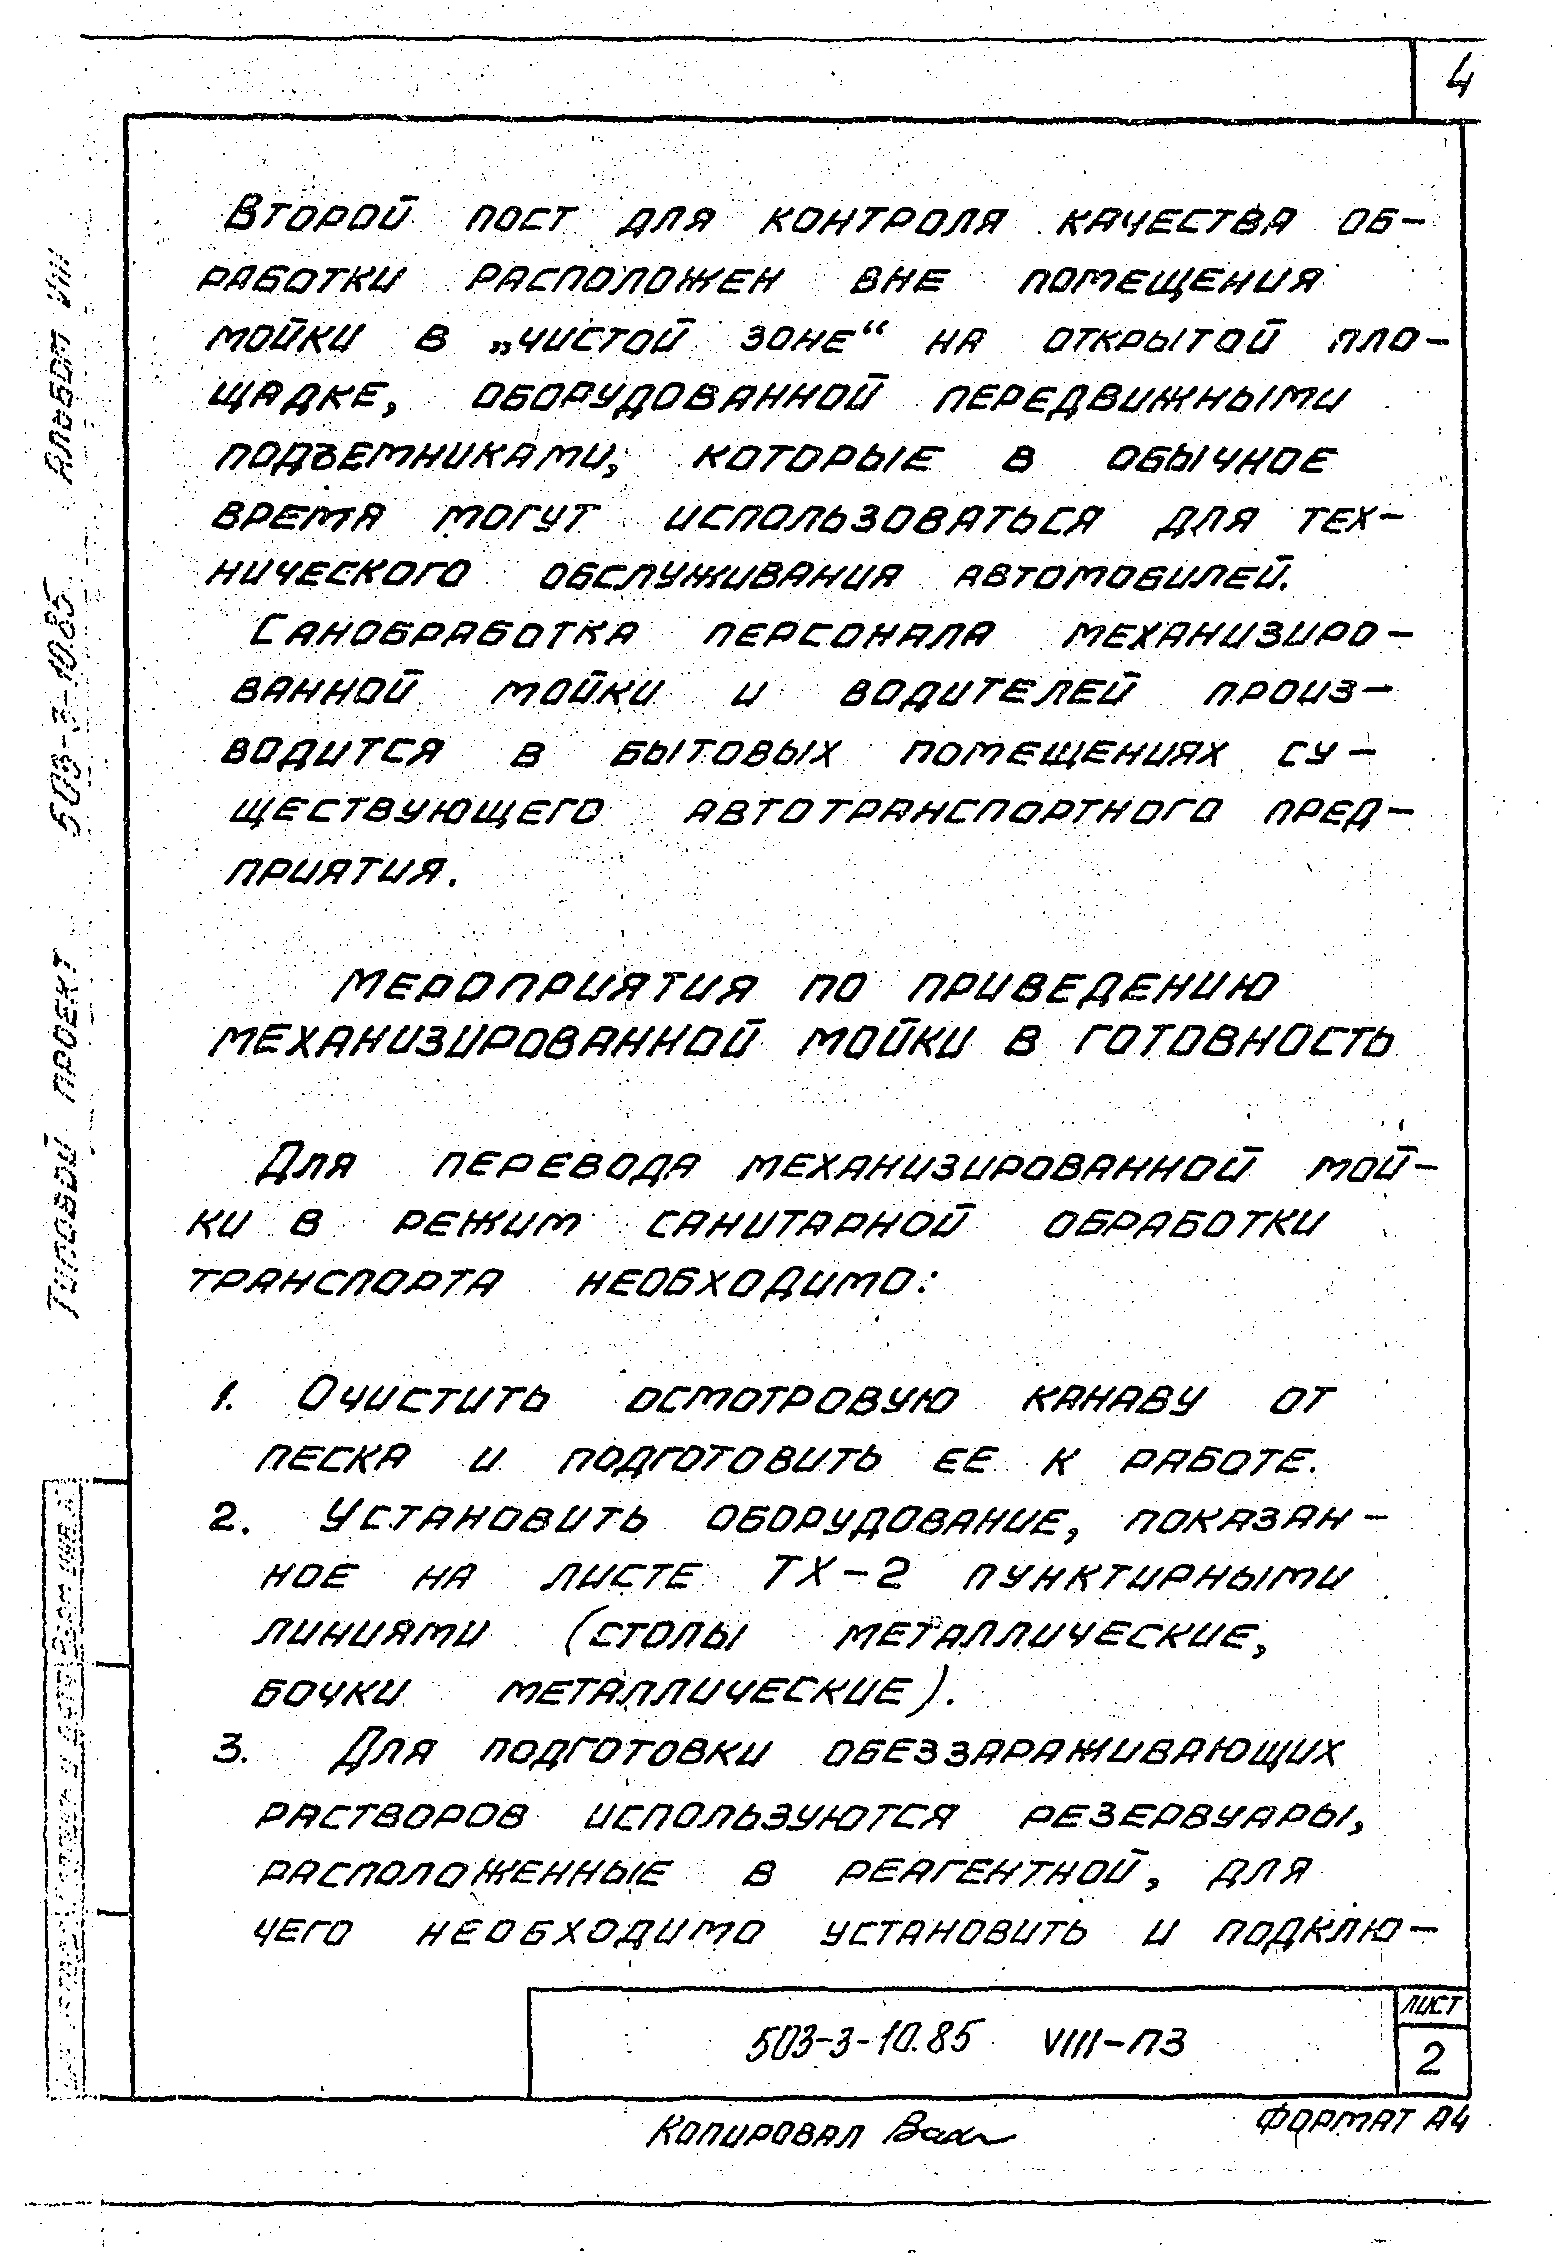 4
Второй пост для контроля качества об-
работки расположен вне помещения
мойки в „чистой зоне“ на открытой пло-
щадке, оборудованной передвижными
подъемниками, которые в обычное
время могут использоваться для тех-
нического обслуживания автомобилей.
Санобработка персонала механизиро-
ванной мойки и водителей произ-
водится в бытовых помещениях су-
ществующего автотранспортного пред-
приятия.
Мероприятия по приведению
механизированной мойки в готовность
Для перевода механизированной мой-
ки в режим санитарной обработки
транспорта необходимо:
1. Очистить осмотровую канаву от
песка и подготовить ее к работе.
2. Установить оборудование, показан-
ное на листе ТХ-2 пунктирными
линиями (столы металлические,
бочки металлические).
3. Для подготовки обеззараживающих
растворов используются резервуары,
расположенные в реагентной, для
чего необходимо установить и подклю-
503-3-10.85 VIII-ПЗ
лист
2
Копировал
Формат А4
Типовой проект 503-3-10.85 Альбом VIII